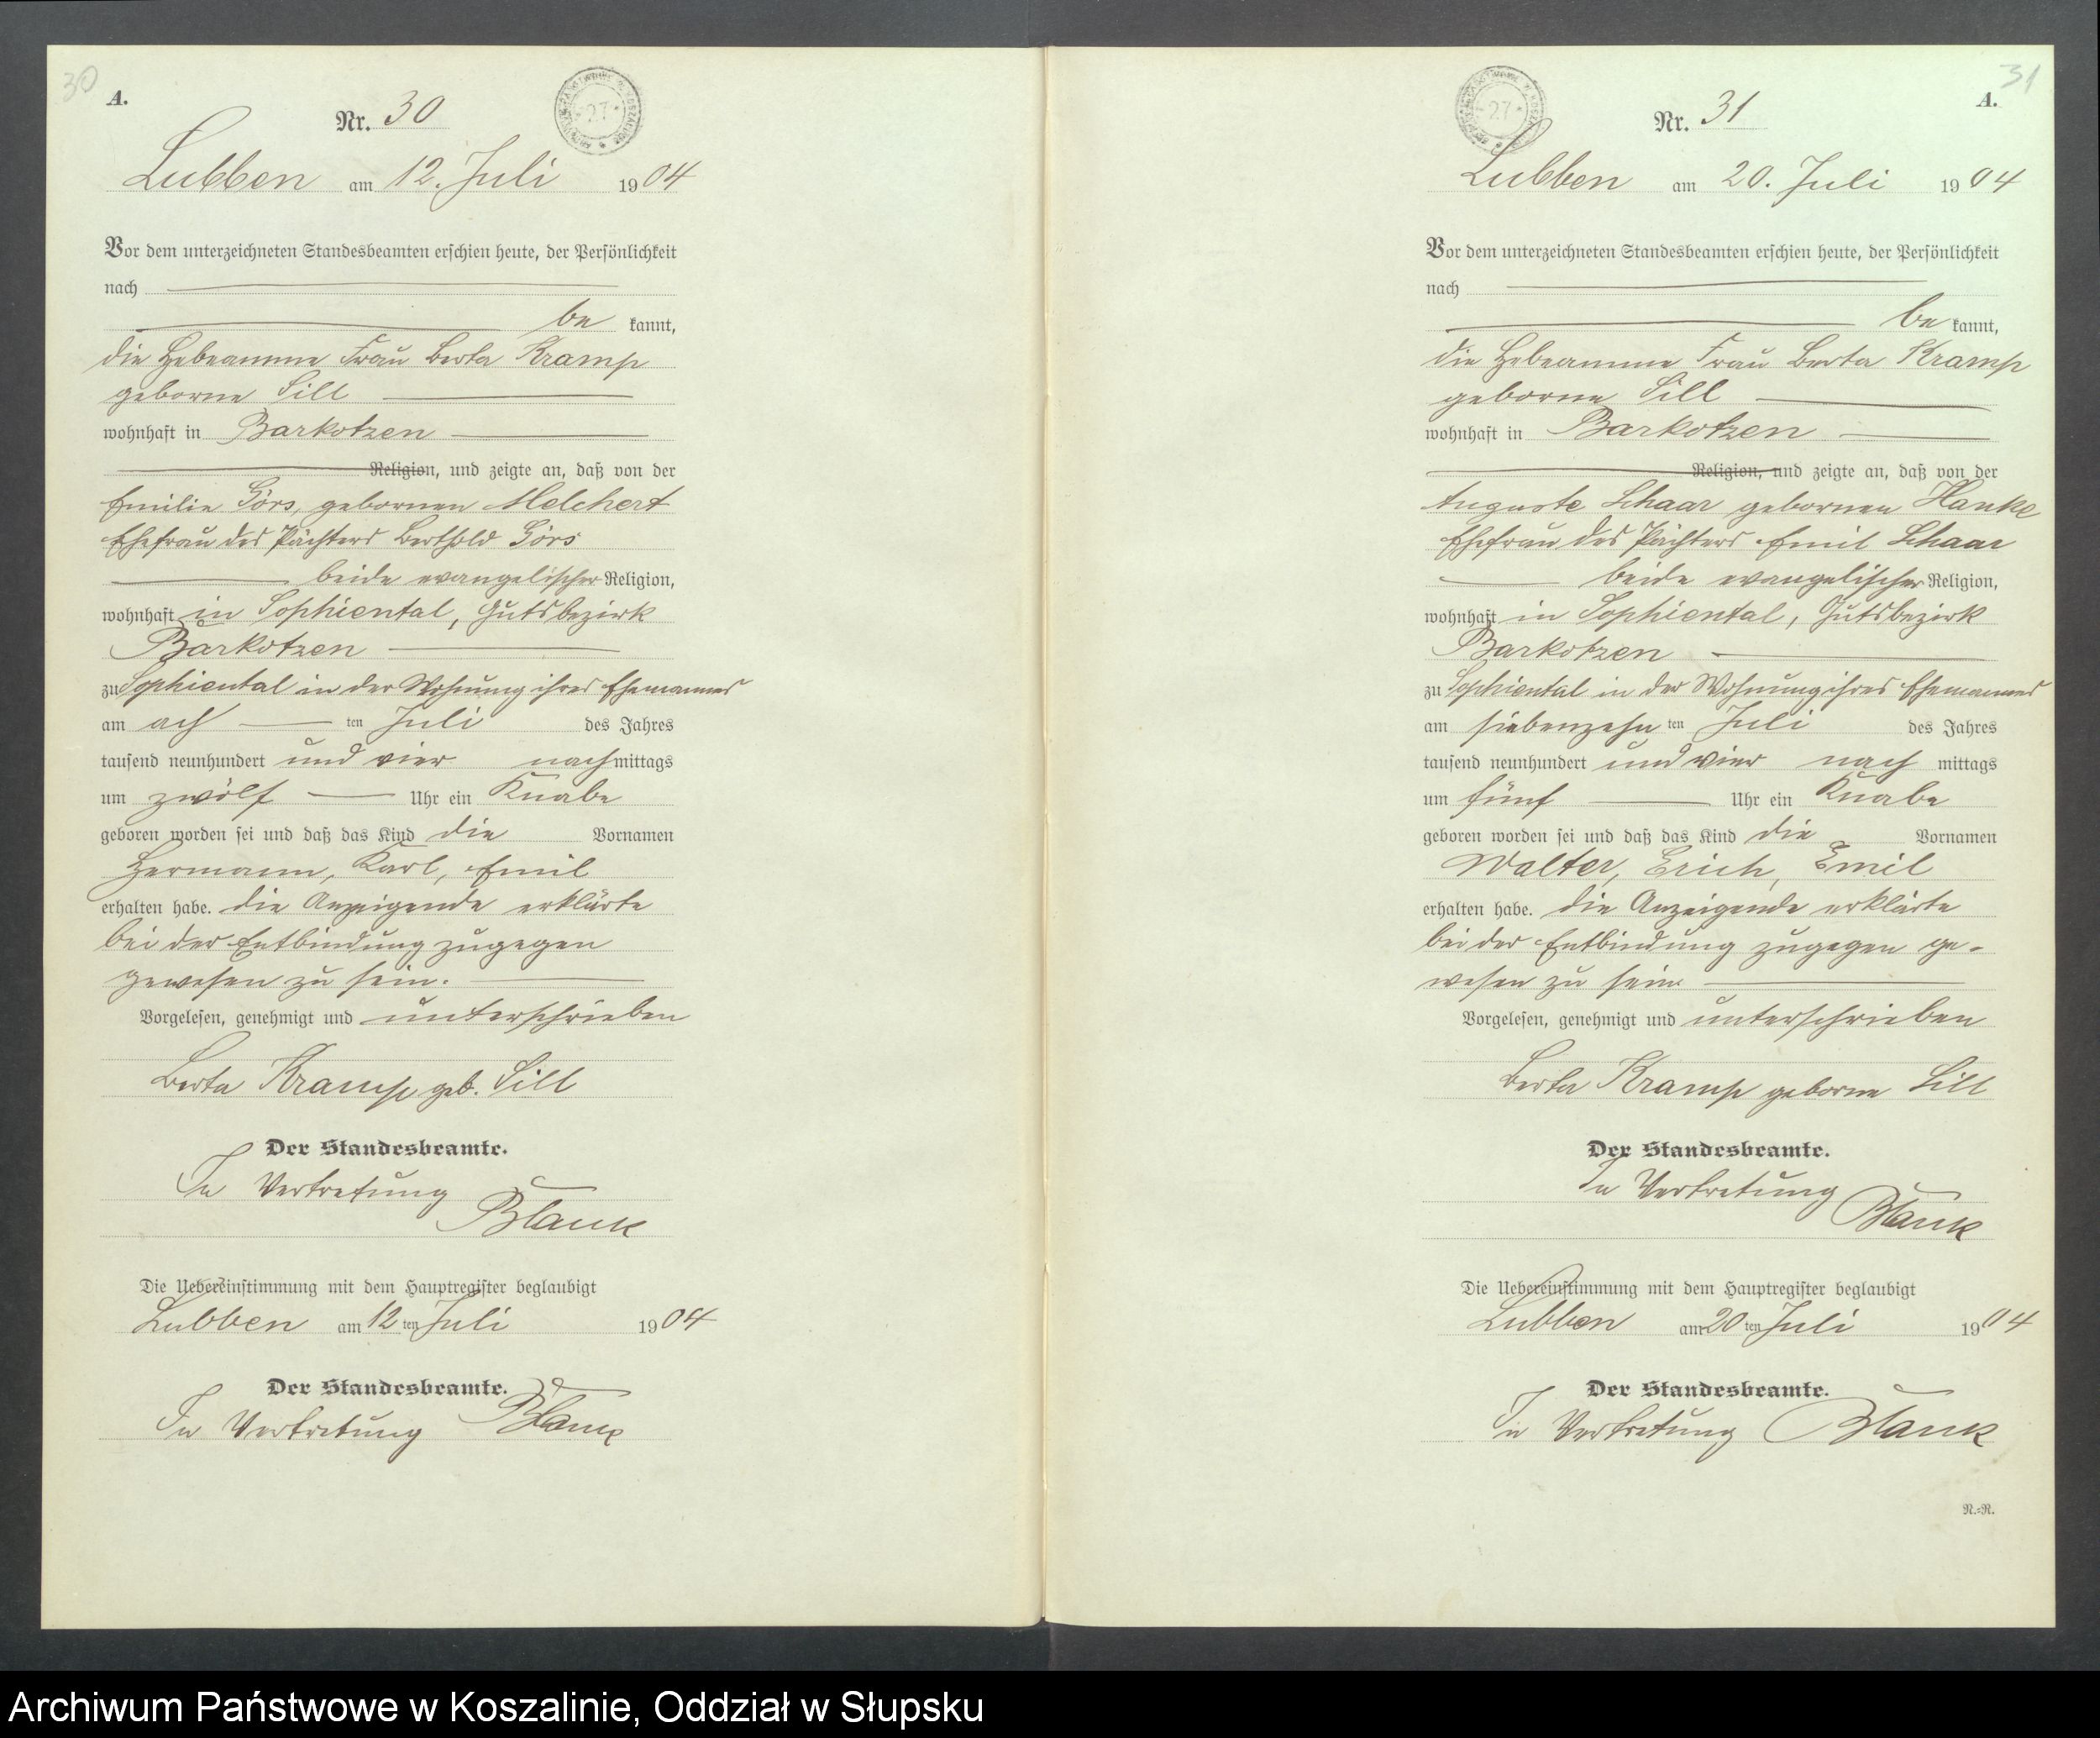 30
A.
Nr. 30
Lubben am 12. Juli 1904
Vor dem unterzeichneten Standesbeamten erschien heute, der Persönlichkeit
nach
be kannt,
die Hebeamme Frau Berta Kramp
geborne Sill
wohnhaft in Barkotzen
Religion, und zeigte an, daß von der
Emilie Görs, gebornen Melchert
Ehefrau des Pächters Berthold Görs
beide evangelischer Religion,
wohnhaft in Sophiental, Gutsbezirk
Barkotzen
zu Sophiental in der Wohnung ihres Ehemannes
am ach ten Juli des Jahres
tausend neunhundert und vier nachmittags
um zwölf Uhr ein Knabe
geboren worden sei und daß das Kind die Vornamen
Hermann, Karl, Emil
erhalten habe. die Anzeigende erklärte
bei der Entbindung zugegen
gewesen zu sein.
Vorgelesen, genehmigt und unterschrieben
Berta Kramp geb. Sill
Der Standesbeamte.
In Vertretung
Blank
Die Uebereinstimmung mit dem Hauptregister beglaubigt
Lubben am 12 ten Juli 1904
Der Standesbeamte.
In Vertretung Blank
31
A.
Nr. 31
Lubben am 20. Juli 1904
Vor dem unterzeichneten Standesbeamten erschien heute, der Persönlichkeit
nach
be kannt,
die Hebeamme Frau Berta Kramp
geborne Sill
wohnhaft in Barkotzen
Religion, und zeigte an, daß von der
Auguste Schaar gebornen Hanke
Ehefrau des Pächters Emil Schaar
beide evangelischer Religion,
wohnhaft in Sophiental, Gutsbezirk
Barkotzen
zu Sophiental in der Wohnung ihres Ehemannes
am siebenzehn ten Juli des Jahres
tausend neunhundert und vier nach mittags
um fünf Uhr ein Knabe
geboren worden sei und daß das Kind die Vornamen
Walter, Erich, Emil
erhalten habe. die Anzeigende erklärte
bei der Entbindung zugegen ge-
wesen zu sein.
Vorgelesen, genehmigt und unterschrieben
Berta Kramp geborne Sill
Der Standesbeamte.
In Vertretung
Blank
Die Uebereinstimmung mit dem Hauptregister beglaubigt
Lubben am 20 ten Juli 1904
Der Standesbeamte.
In Vertretung Blank
N.-R.
Archiwum Państwowe w Koszalinie, Oddział w Słupsku